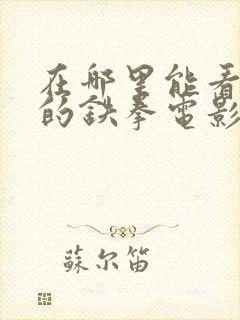 在哪里能看
的鉄拳電影
蘇尔笛